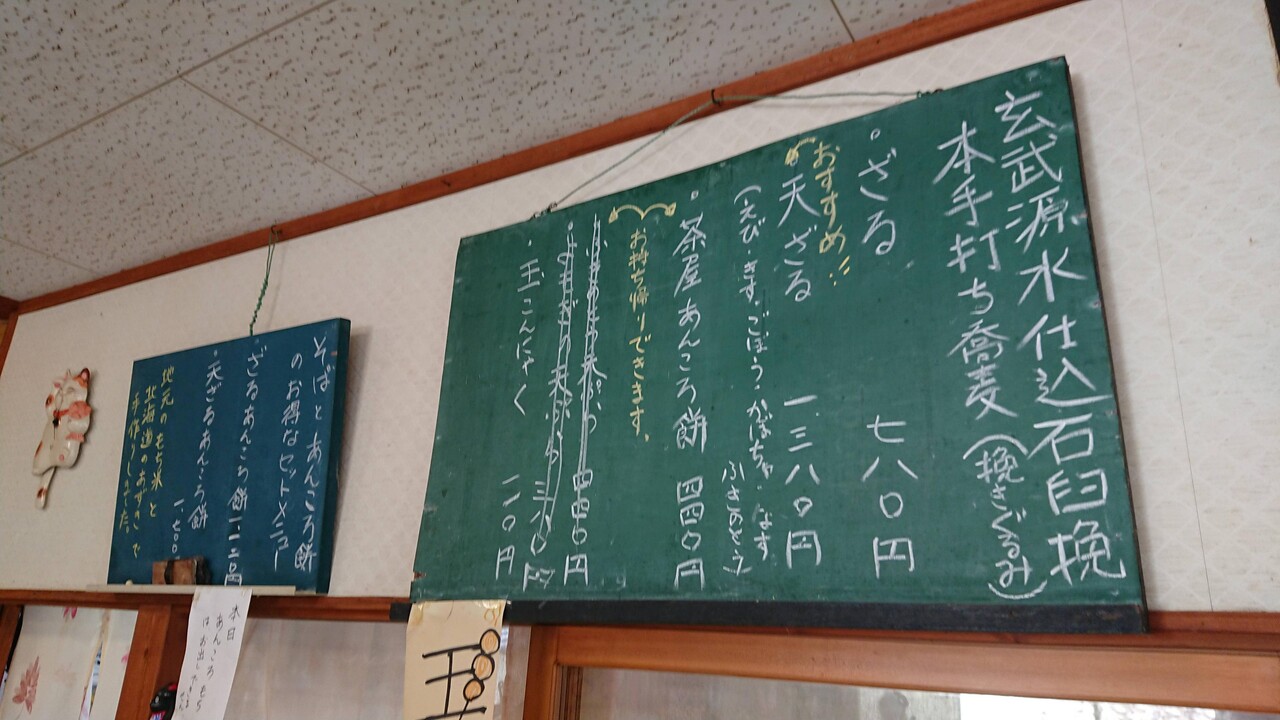 玄武源水仕込石臼挽
本手打ち蕎麦(挽きぐるみ)
。ざる 七八〇円
おすすめ!!
天ざる 一、三八〇円
(えび・きす・ごぼう・かぼちゃ・なす
ふきのとう)
。茶屋あんころ餅 四四〇円
お持ち帰りできます。
四四〇円
・玉こんにゃく 一一〇円
そばとあんころ餅
のお得なセットメニュー
・天ざるあんころ餅
地元のもち米と
北海道のあずきで
手作りしました。
本日
あんころもち